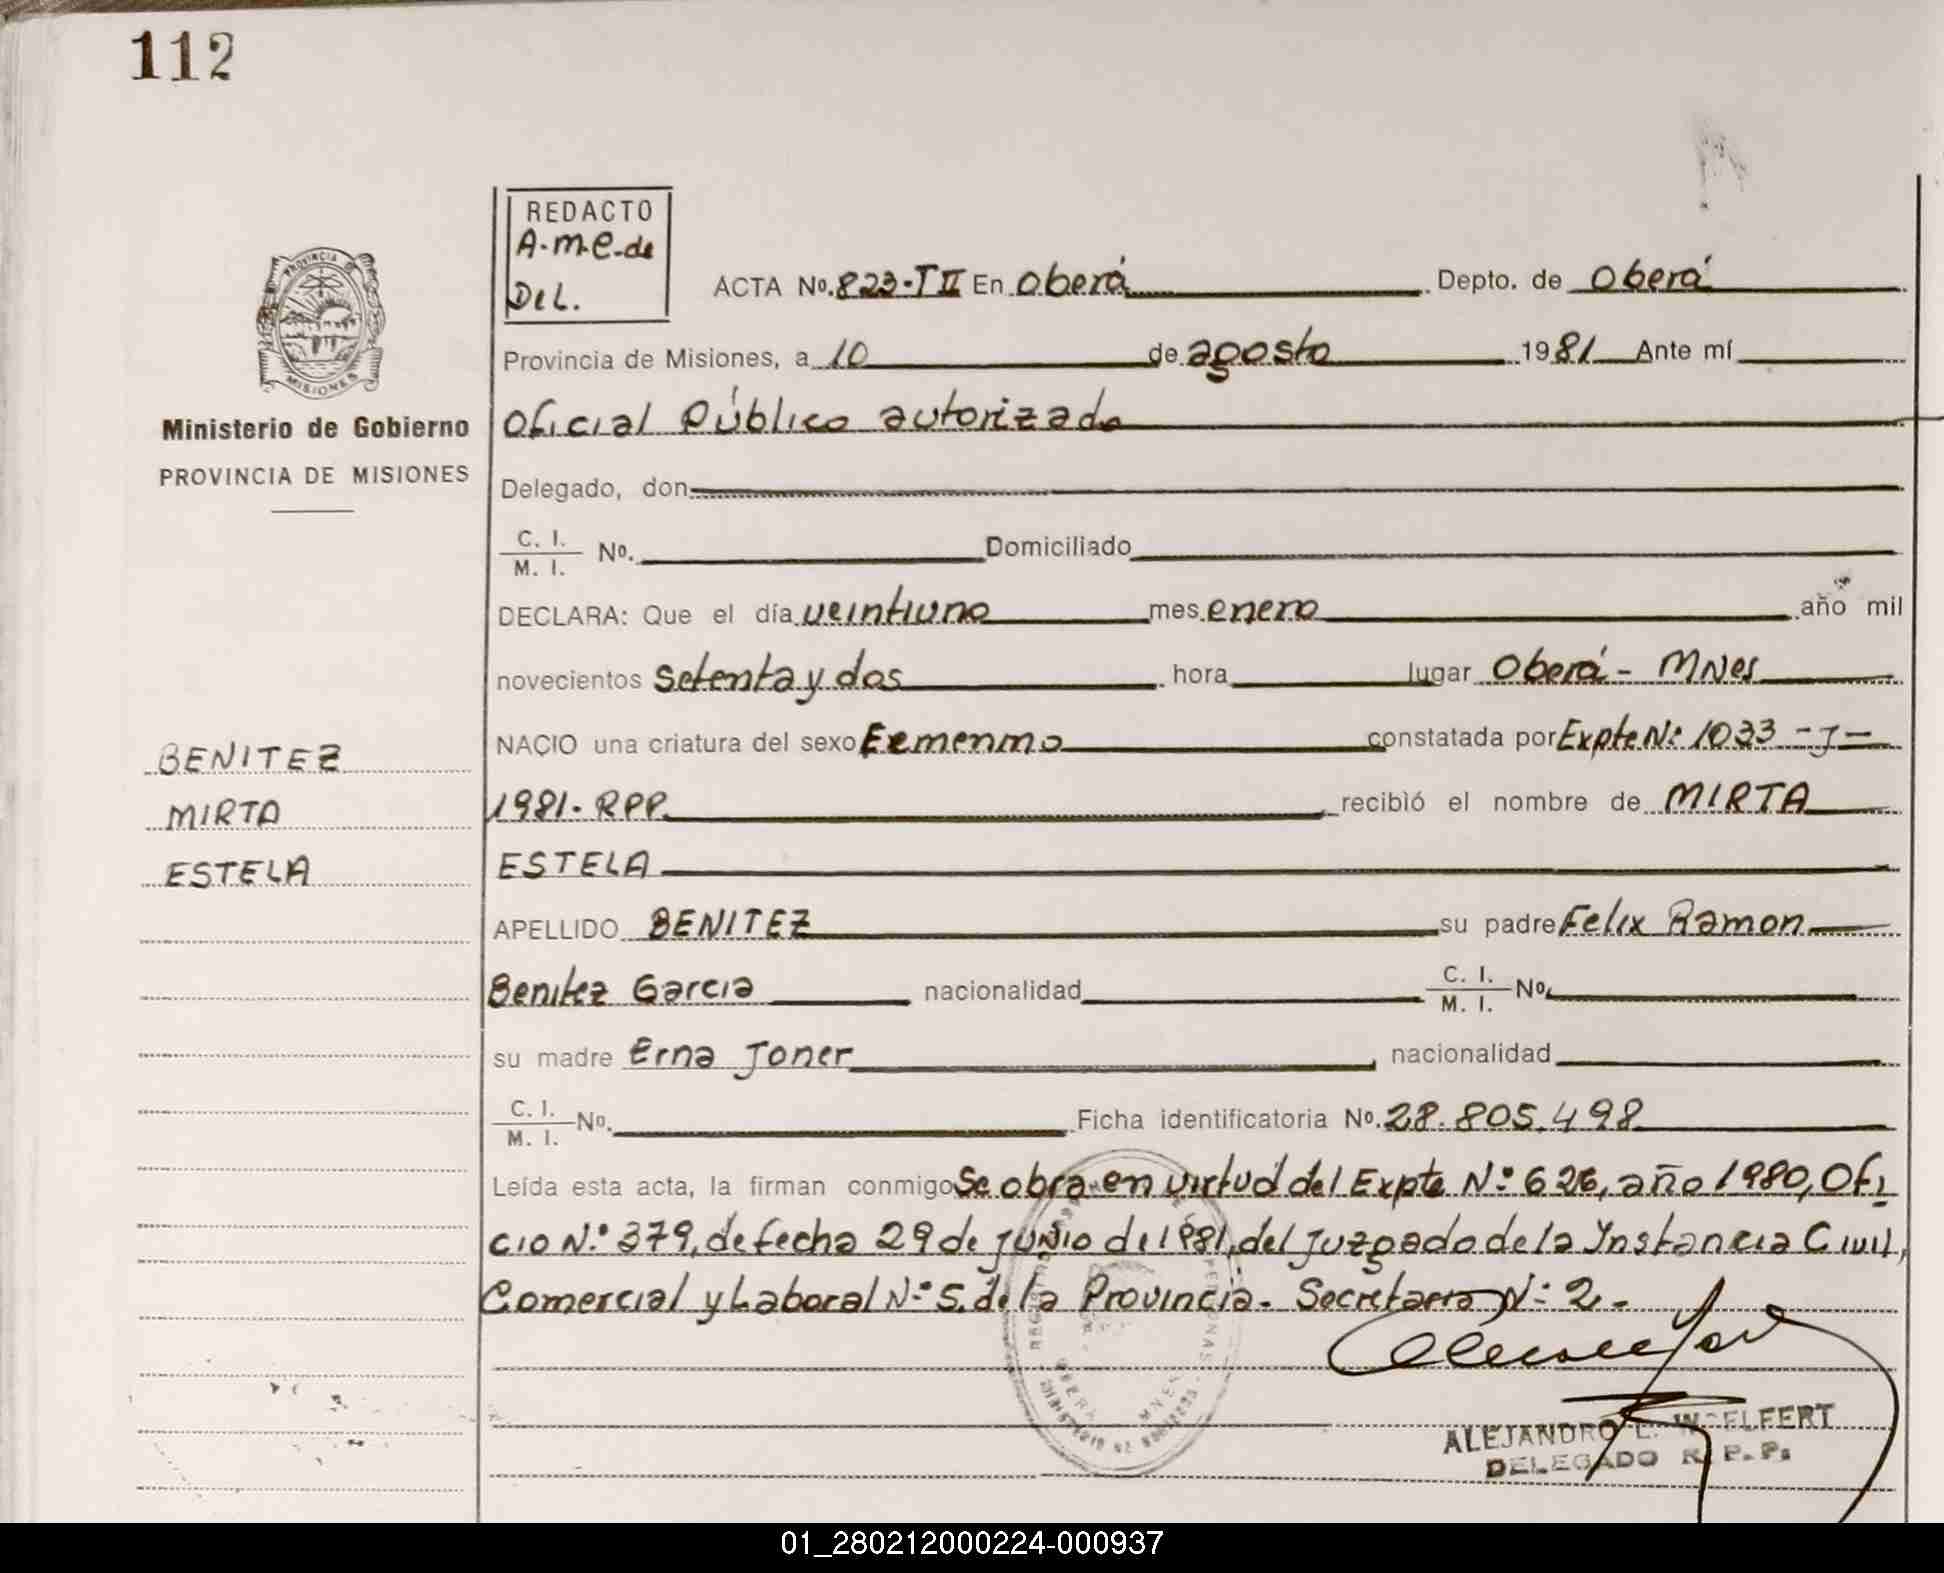 112
REDACTO
A.M.E. de
DEL.
PROVINCIA DE
MISIONES
Ministerio de Gobierno
PROVINCIA DE MISIONES
BENITEZ
MIRTA
ESTELA
ACTA No. 823-T II En Oberá Depto. de Oberá
Provincia de Misiones, a 10 de agosto 1981 Ante mí
Oficial Público autorizado
Delegado, don
C. I. / M. I. No. Domiciliado
DECLARA: Que el día veintiuno mes enero año mil
novecientos setenta y dos hora lugar Oberá - MNes
NACIO una criatura del sexo Femenino constatada por Expte Nº 1033 - J -
1981. RPP. recibió el nombre de MIRTA
ESTELA
APELLIDO BENITEZ su padre Felix Ramon
Benitez Garcia nacionalidad C. I. / M. I. No.
su madre Erna Joner nacionalidad
C. I. / M. I. No. Ficha identificatoria No. 28.805.498
Leída esta acta, la firman conmigo Se obra en virtud del Expte Nº 626, año 1980, Ofi
cio Nº 379, de fecha 29 de junio de 1981, del Juzgado de 1a Instancia Civil,
Comercial y Laboral Nº 5. de la Provincia. Secretaria Nº 2.
ALEJANDRO L. WOELFERT
DELEGADO R. P. P.
01_280212000224-000937